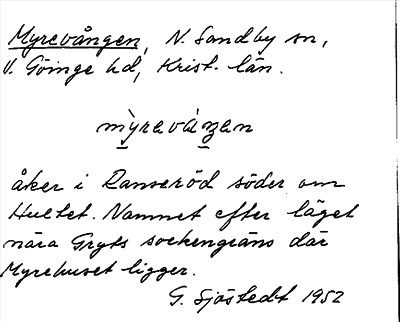 Myrevången, N. Sandby sn,
V. Göinge hd, Krist. län.
mỳravàŋen
åker i Ranseröd söder om
Hultet. Namnet efter läget
nära Gryts sockengräns där
Myrehuset ligger.
G. Sjöstedt 1952